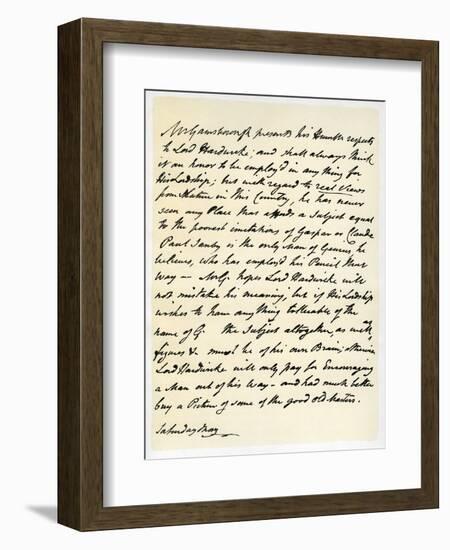 Mr Gainsborough presents his Humble respects
to Lord Hardwicke; and shall always think
it an honor to be employ'd in any thing for
His Lordship; but with regard to real Views
from Nature in this Country, he has never
seen any Place that affords a Subject equal
to the poorest imitations of Gaspar or Claude
Paul Sanby is the only Man of Genius, he
believes, who has employ'd his Pencil that
way — Mr G. hopes Lord Hardwicke will
not mistake his meaning, but if His Lordship
wishes to have any thing tollerable of the
name of G. the Subject altogether, as well as
figures &c. must be of his own Brain; otherwise
Lord Hardwicke will only pay for Encouraging
a Man out of his way — and had much better
buy a Picture of some of the good old Masters.
Saturday Morg